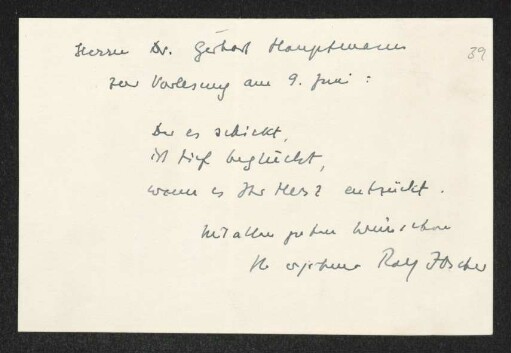 Herrn Dr. Gerhart Hauptmann
39
zur Vorlesung am 9. Juni :
Der es schickt,
ist tief beglückt,
wenn es Ihr Herz entzückt.
Mit allen guten Wünschen
Ihr ergebener Rolf